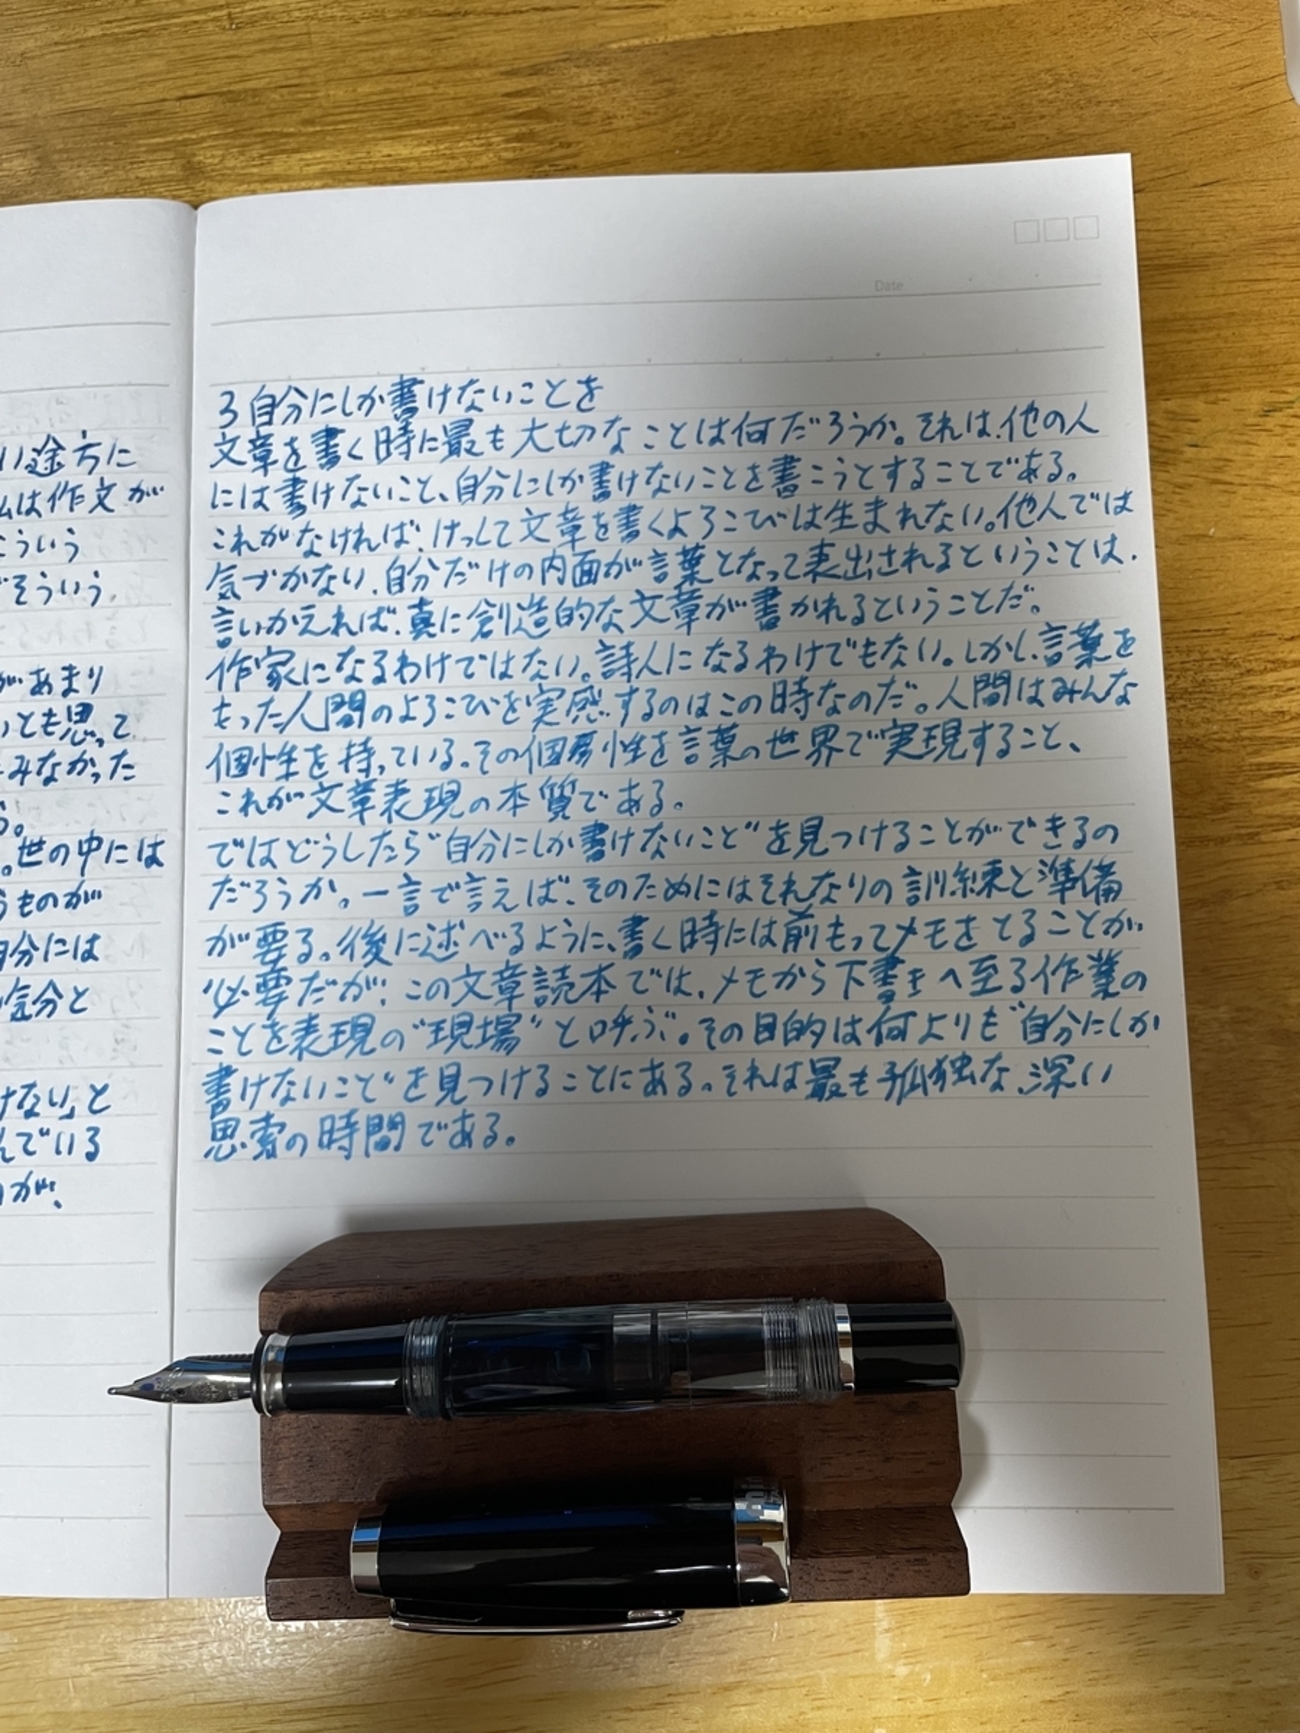 い途方に
私は作文が
こういう
そういう
があまり
とも思って
みなかった
う。
。世の中には
うものが
自分には
気分と
けない」と
んでいる
が、
Date
3 自分にしか書けないことを
文章を書く時に最も大切なことは何だろうか。それは、他の人
には書けないこと、自分にしか書けないことを書こうとすることである。
これがなければ、けっして文章を書くよろこびは生まれない。他人では
気づかない、自分だけの内面が言葉となって表出されるということは、
言いかえれば、真に創造的な文章が書かれるということだ。
作家になるわけではない。詩人になるわけでもない。しかし、言葉を
もった人間のよろこびを実感するのはこの時なのだ。人間はみんな
個性を持っている。その個性を言葉の世界で実現すること、
これが文章表現の本質である。
ではどうしたら"自分にしか書けないこと"を見つけることができるの
だろうか。一言で言えば、そのためにはそれなりの訓練と準備
が要る。後に述べるように、書く時には前もってメモをとることが
必要だが、この文章読本では、メモから下書きへ至る作業の
ことを表現の"現場"と呼ぶ。その目的は何よりも"自分にしか
書けないこと"を見つけることにある。それは最も孤独な、深い
思索の時間である。